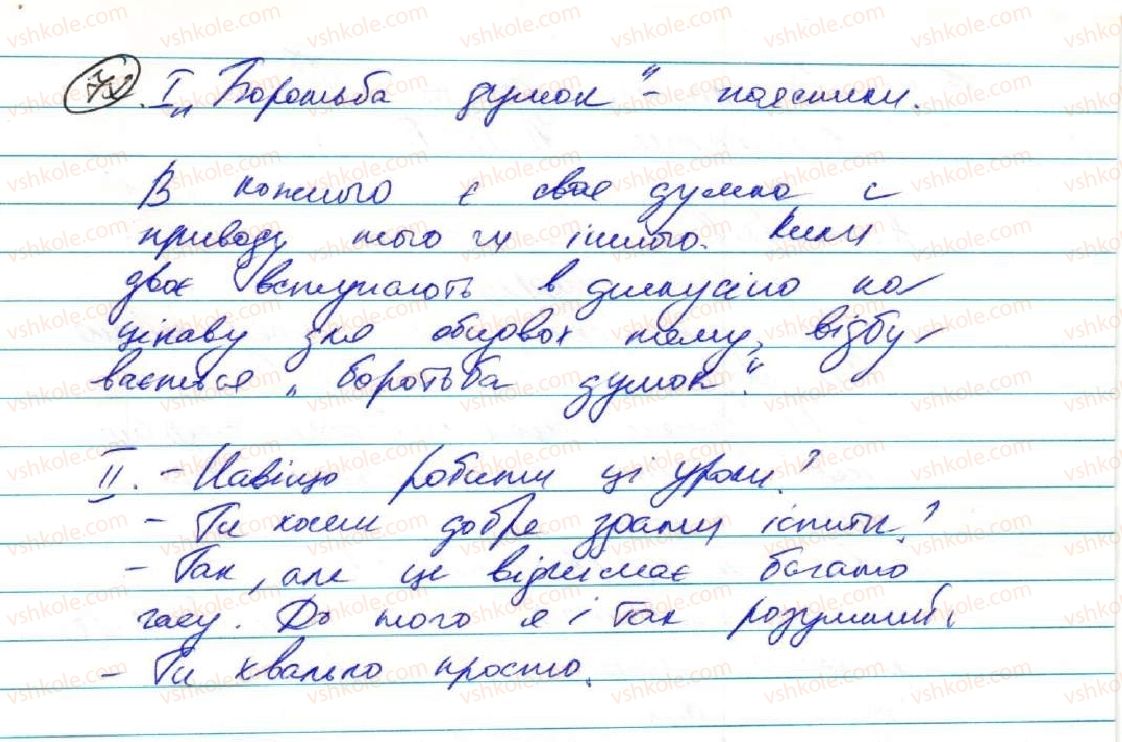 72. I „Боротьба думок" - пояснити.
В кожного є своя думка с
приводу того чи іншого. Коли
двоє вступають в дискусію на
цікаву для обидвох тему, відбу-
вається „боротьба думок".
II. - Навіщо робити ці уроки?
- Ти хочеш добре здати іспити?
- Так, але це віднімає багато
часу. До того я і так розумний.
- Ти хвалько просто.
vshkole.com